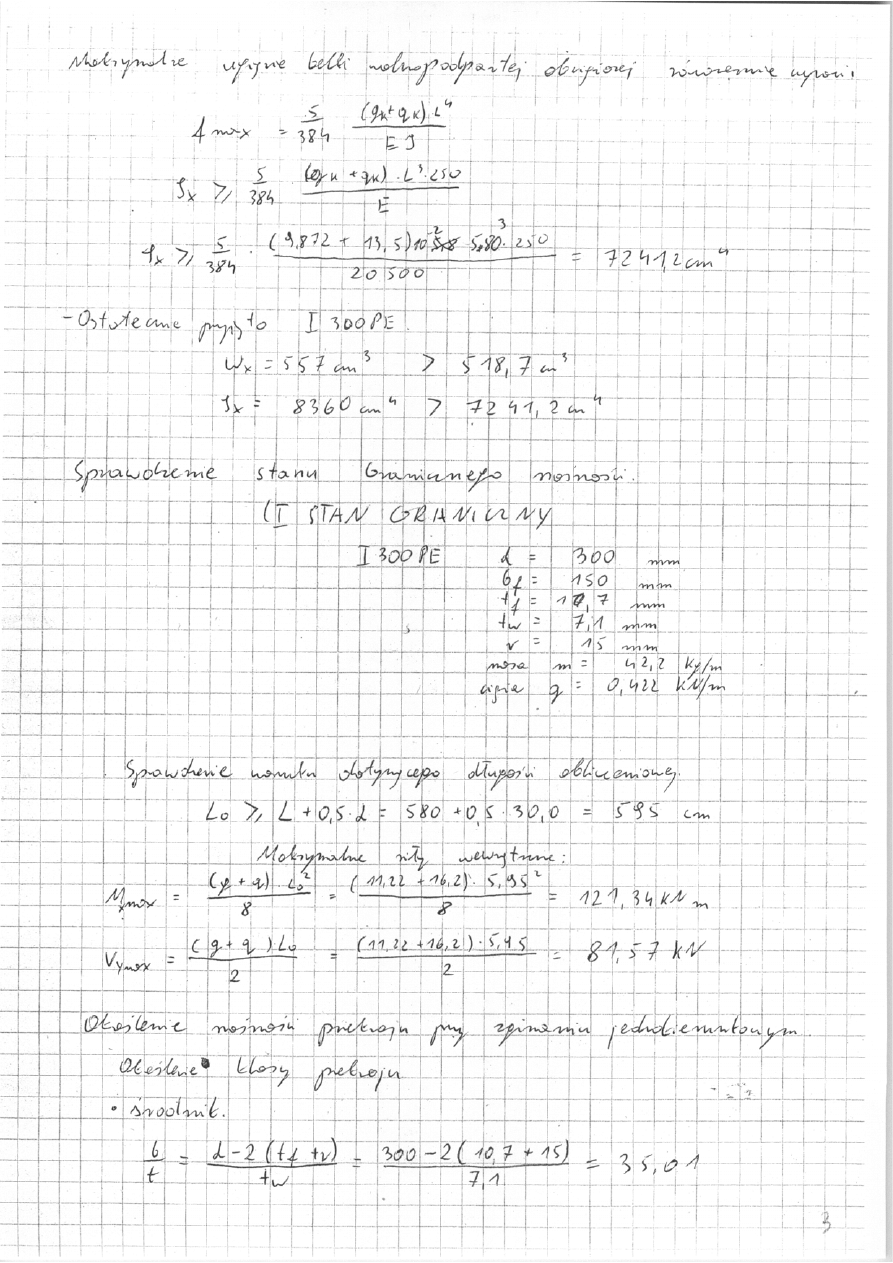 Maksymalne ugięcie belki wolnopodpartej obciążonej równomiernie wynosi:
f max = 5/384 (gk+qk)·L⁴ / EJ
Jx ≥ 5/384 (gk+qk)·L³·250 / E
Jx ≥ 5/384 · (9,872 + 13,5)10⁻² 5,80³·250 / 20500 = 7241,2cm⁴
- Ostatecznie przyjęto I 300PE
Wx = 557 cm³ > 518,7 cm³
Jx = 8360 cm⁴ > 7241,2 cm⁴
Sprawdzenie stanu Granicznego nośności.
(I STAN GRANICZNY
I 300PE d = 300 mm
bf = 150 mm
tf = 10,7 mm
tw = 7,1 mm
r = 15 mm
masa m = 42,2 kg/m
g = 0,422 kN/m
Sprawdzenie warunku dotyczącego długości obliczeniowej.
Lo ≥ L + 0,5·d = 580 + 0,5·30,0 = 595 cm
Maksymalne siły wewnętrzne:
Mxmax = (g+q)·Lo² / 8 = (11,22 + 16,2)·5,95² / 8 = 121,34 kNm
Vymax = (g+q)·Lo / 2 = (11,22 + 16,2)·5,95 / 2 = 81,57 kN
Określenie nośności przekroju przy zginaniu jednokierunkowym.
Określenie klasy przekroju
• środnik.
b/t = d-2(tf+r) / tw = 300-2(10,7+15) / 7,1 = 35,01
3